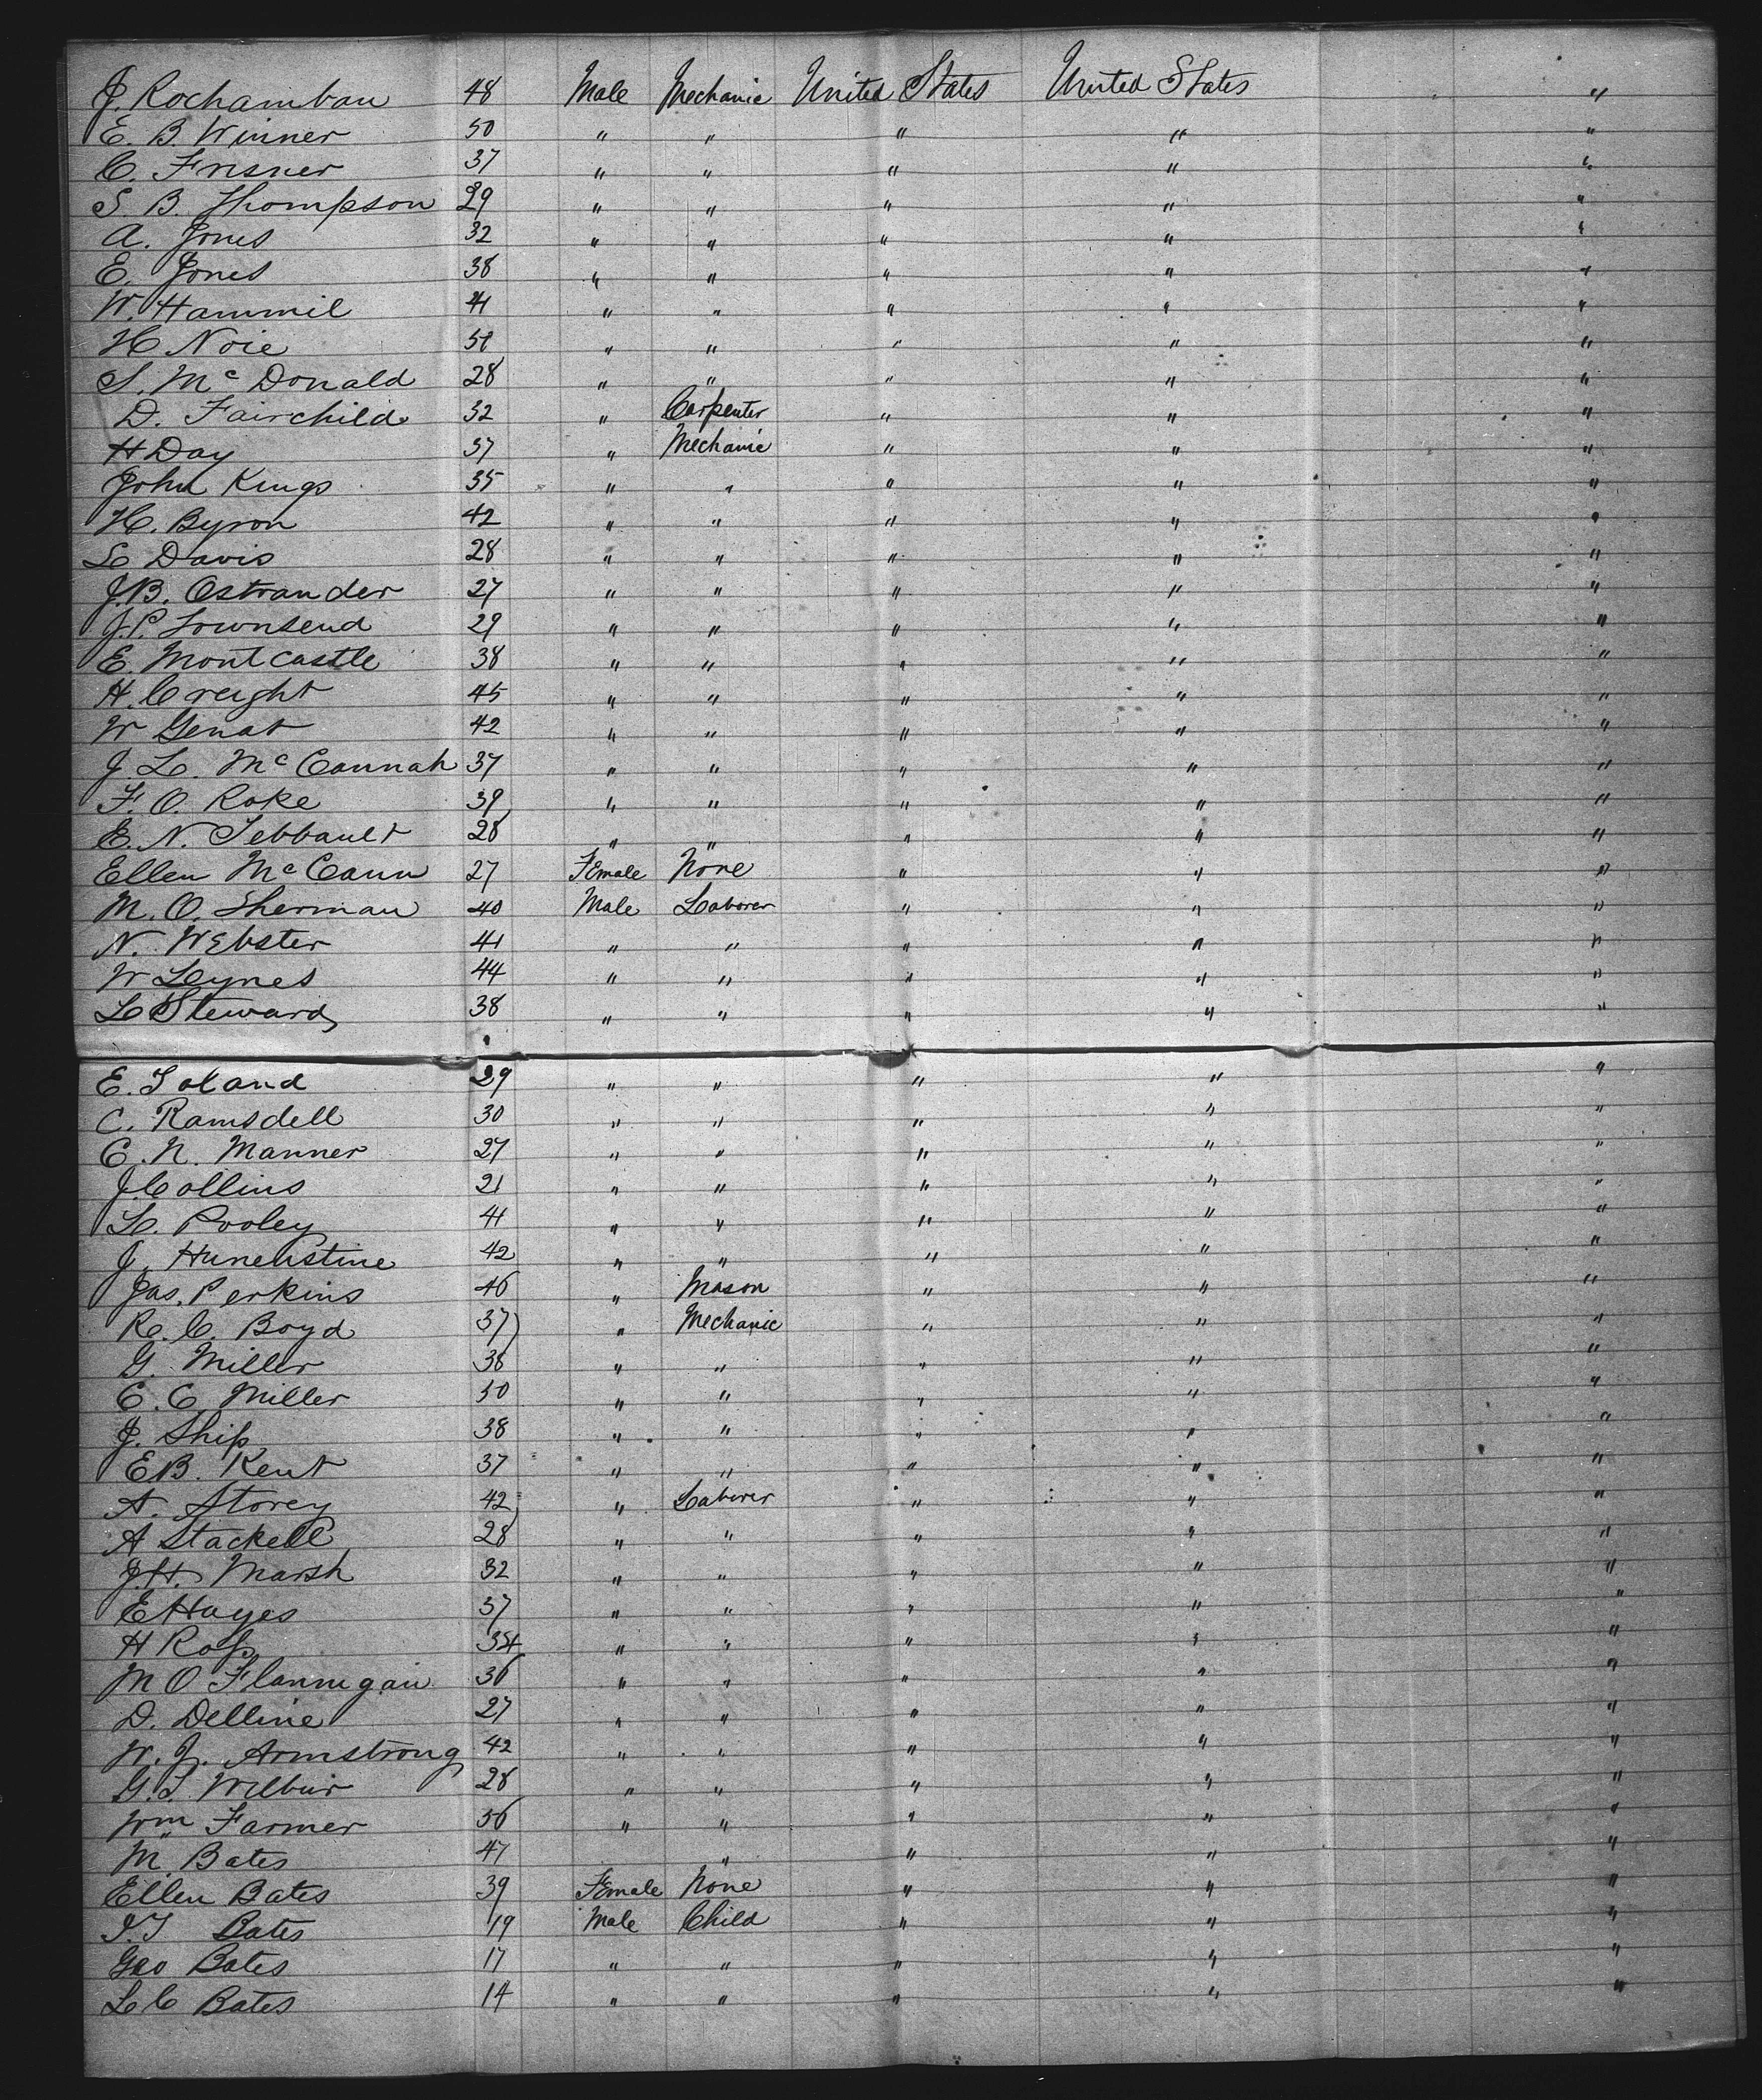 J. Rochambau 48 Male Mechanic United States United States "
E. B. Winner 50 " " " " "
C. Frisner 37 " " " " "
S. B. Thompson 29 " " " " "
A. Jones 32 " " " " "
E. Jones 38 " " " " "
W. Hammil 41 " " " " "
H Noie " " " " "
S. Mc Donald 28 " " " " "
D. Fairchild 32 " Carpenter " " "
H Day 37 " Mechanic " " "
John Kings 35 " " " " "
H. Byron 42 " " " " "
L Davis 28 " " " " "
J.B. Ostrander 27 " " " " "
J.P. Townsend 29 " " " " "
E. Montcastle 38 " " " " "
H. Creight 45 " " " " "
W Genat 42 " " " " "
J. L. Mc Cannah 37 " " " " "
F. O. Roke 39 " " " " "
E. N. Tebbault 28 " " " " "
Ellen Mc Cann 27 Female None " " "
M. O. Sherman 40 Male Laborer " " "
N. Webster 41 " " " " "
W Leynes 44 " " " " "
L Steward 38 " " " " "
E. Toland 29 " " " " "
C. Ramsdell 30 " " " " "
C. N. Manner 27 " " " " "
J. Collins 21 " " " " "
L. Pooley 41 " " " " "
J. 42 " " " " "
Jas. Perkins 46 " Mason " " "
R. C. Boyd 37 " Mechanic " " "
G. Miller 38 " " " " "
C. C. Miller 30 " " " " "
J. Ship 38 " " " " "
E.B. Kent 37 " " " " "
A. Storey 42 " Laborer " " "
A Stackell 28 " " " " "
J.H. Marsh 32 " " " " "
E Hayes 37 " " " " "
H Ross 34 " " " " "
M O Flannigan 36 " " " " "
D. Delline 27 " " " " "
W. J. Armstrong 42 " " " " "
G. T. Wilbur 28 " " " " "
Wm Farmer 56 " " " " "
M. Bates 47 " " " "
Ellen Bates 39 Female None " " "
I.T Bates 19 Male Child " " "
Geo Bates 17 " " " " "
L C Bates 14 " " " " "